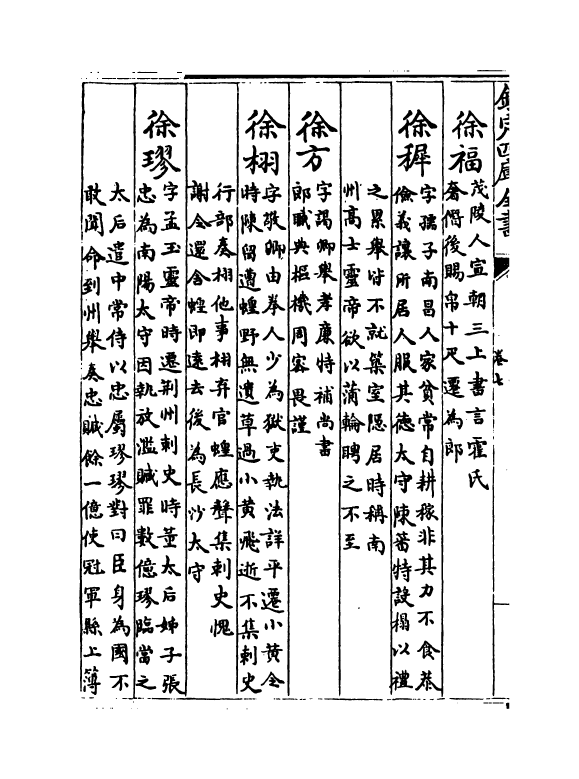 欽定四庫全書
卷七
徐福
茂陵人宣朝三上書言霍氏
奢僭後賜帛十尺遷為郎
徐穉
字孺子南昌人家貧常自耕稼非其力不食恭
儉義讓所居人服其德太守陳蕃特設榻以禮
之累舉皆不就築室隱居時稱南
州高士靈帝欲以蒲輪聘之不至
徐方
字謁卿舉孝廉特補尚書
郎職典樞機周密畏謹
徐栩
字敬卿由拳人少為獄吏執法詳平遷小黃令
時陳留遭蝗野無遺草過小黃飛逝不集刺史
行部奏栩他事栩弃官蝗應聲集刺史愧
謝令還舍蝗即逺去後為長沙太守
徐璆
字孟玉靈帝時遷荆州刺史時董太后姊子張
忠為南陽太守因執放濫贓罪數億璆臨當之
太后遣中常侍以忠屬璆璆對曰臣身為國不
敢聞命到州舉奏忠贓餘一億使冠軍縣上簿